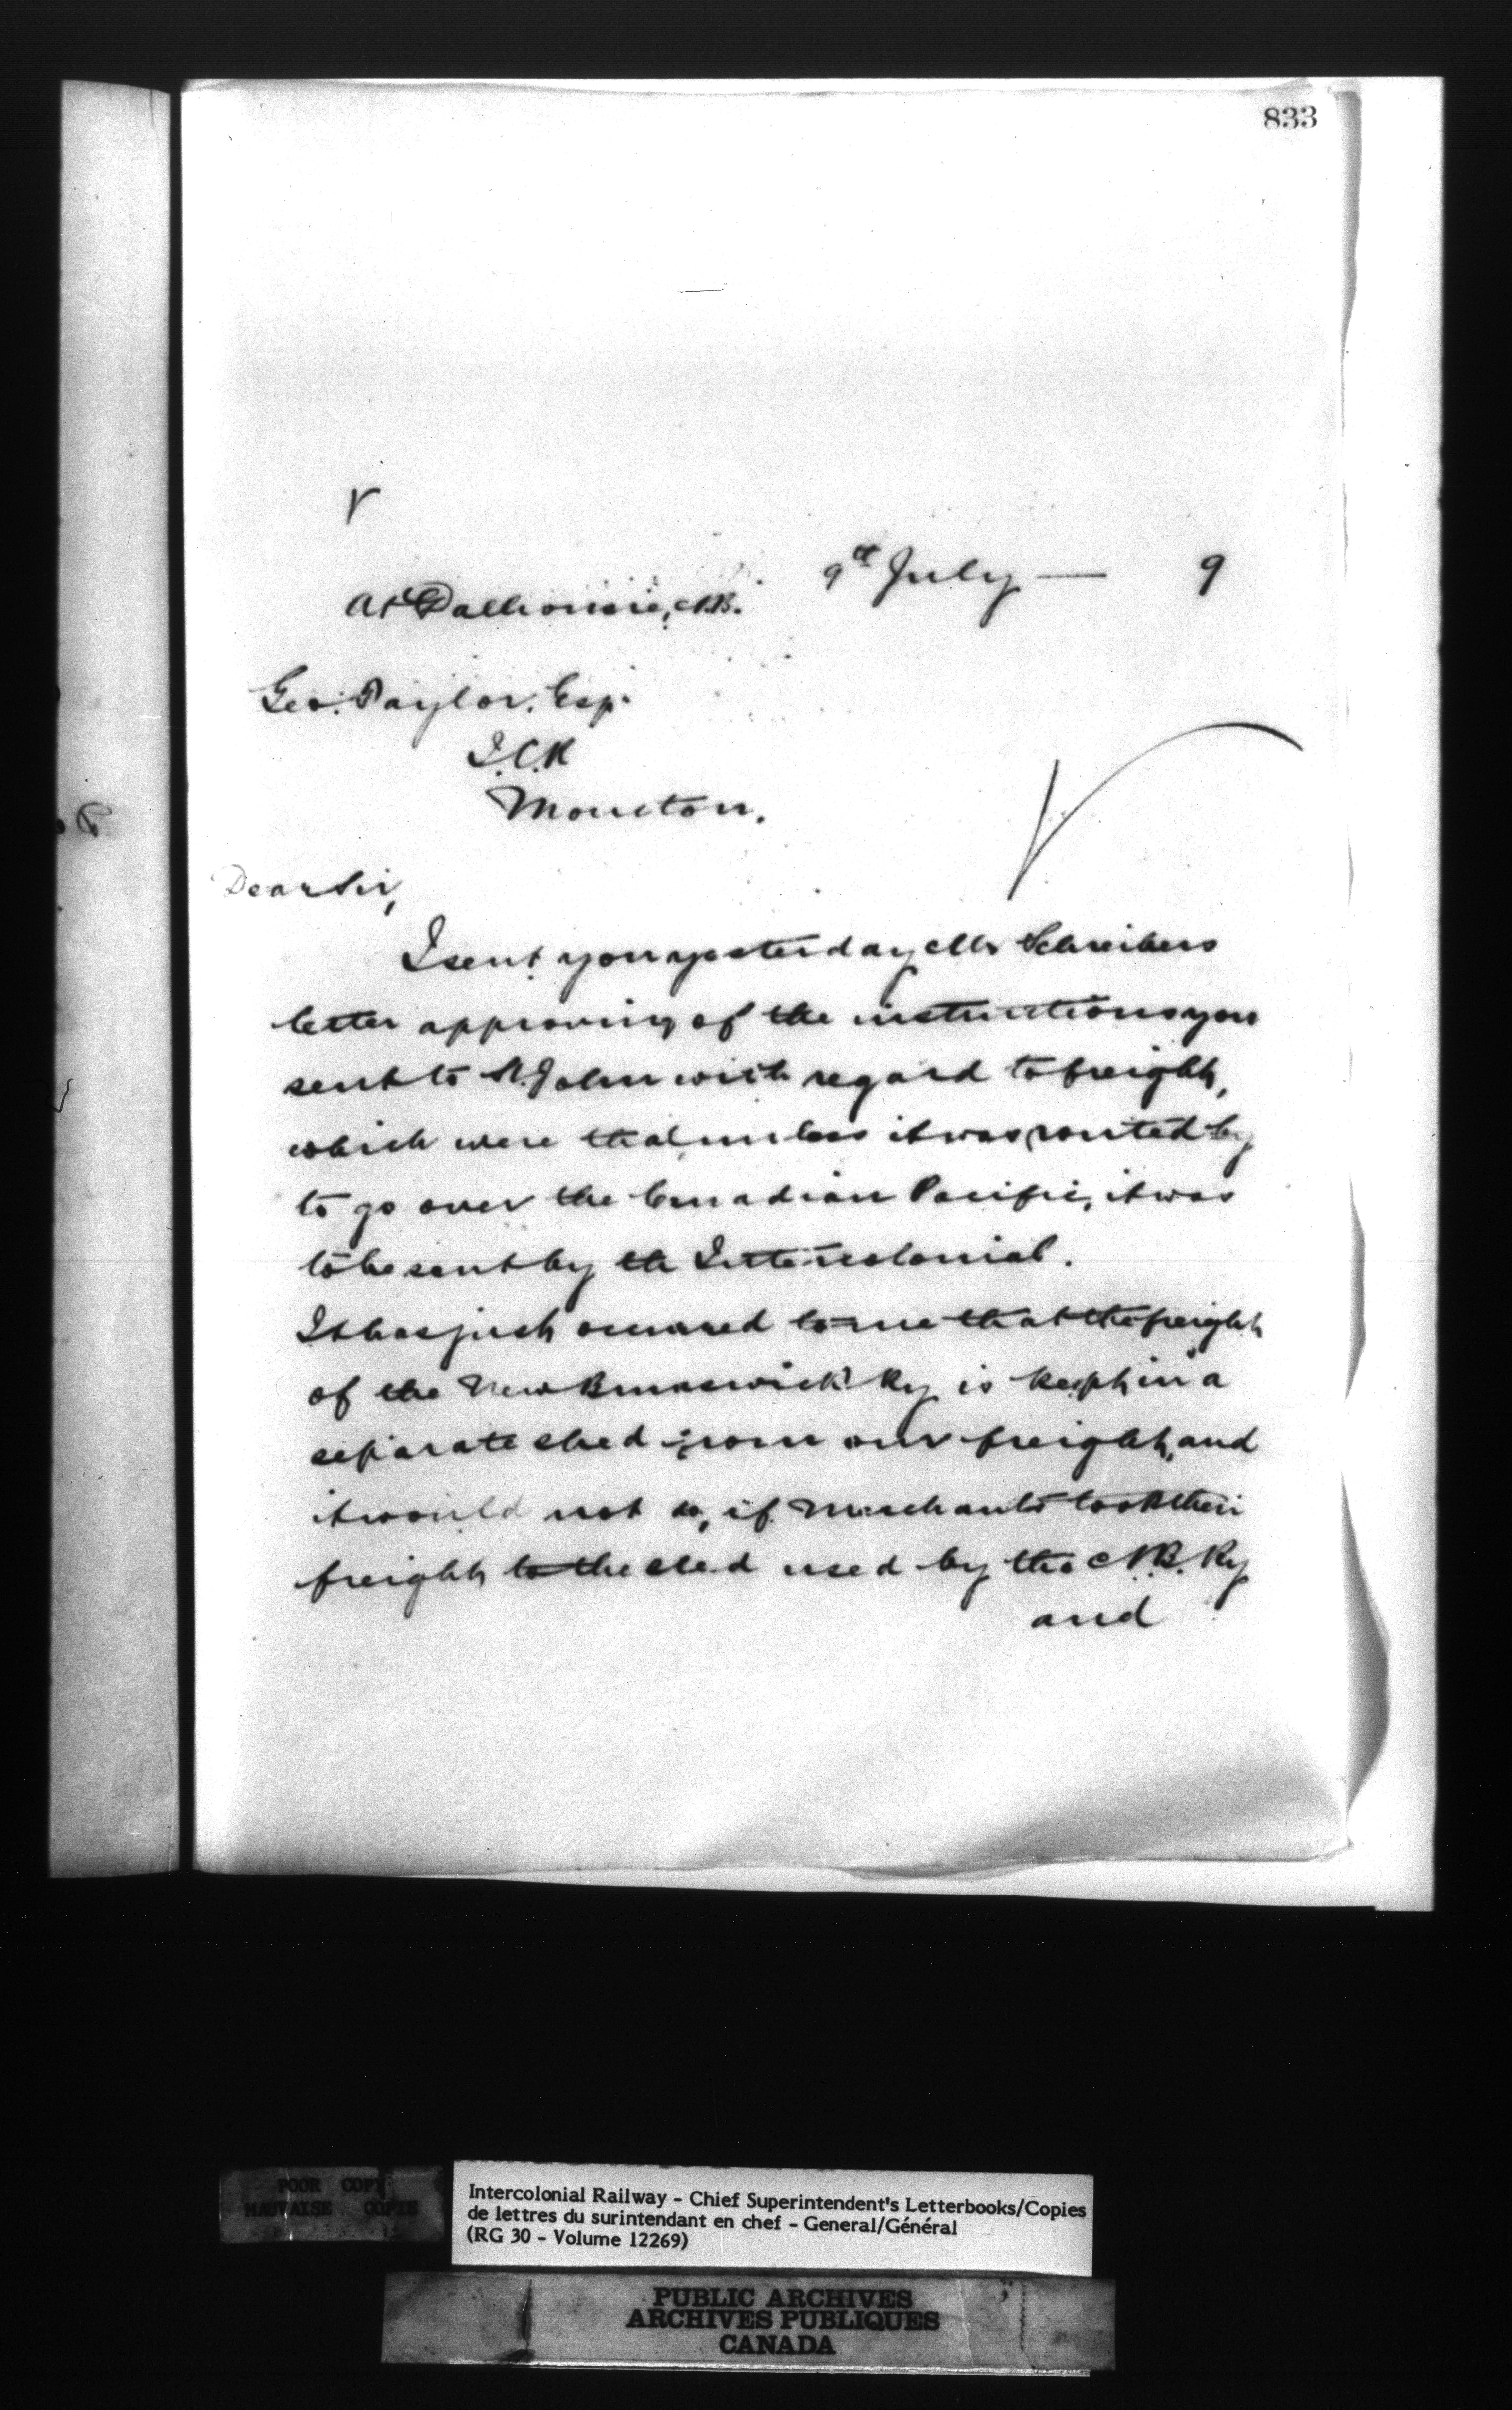 833
9th July — 9
At Dalhousie, N.B.
Geo. Taylor, Esq.
I.C.R
Moncton.
Dear Sir,
I sent you yesterday Mr Schreibers
letter approving of the instructions you
sent to St. John with regard to freight,
which were that unless it was routed by
to go over the Canadian Pacific, it was
to be sent by the Intercolonial.
It has just occurred to me that the freight
of the New Brunswick Ry is kept in a
separate shed from our freight, and
it would not do, if Merchants took their
freight to the shed used by the N.B. Ry
and
POOR COPY
MAUVAISE COPIE
Intercolonial Railway - Chief Superintendent's Letterbooks/Copies
de lettres du surintendant en chef - General/Général
(RG 30 - Volume 12269)
PUBLIC ARCHIVES
ARCHIVES PUBLIQUES
CANADA